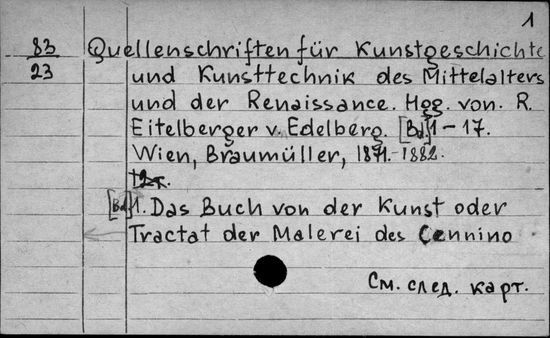 1
83 Quellenschriften für Kunstgeschichte
23 und Kunsttechnik des Mittelalters
und der Renaissance. Hgg. von. R.
Eitelberger v. Edelberg. [Bd.] 1-17.
Wien, Braumüller, 1871.-1882.
12т.
[Bd] 1. Das Buch von der Kunst oder
Tractat der Malerei des Cennino
См. след. карт.